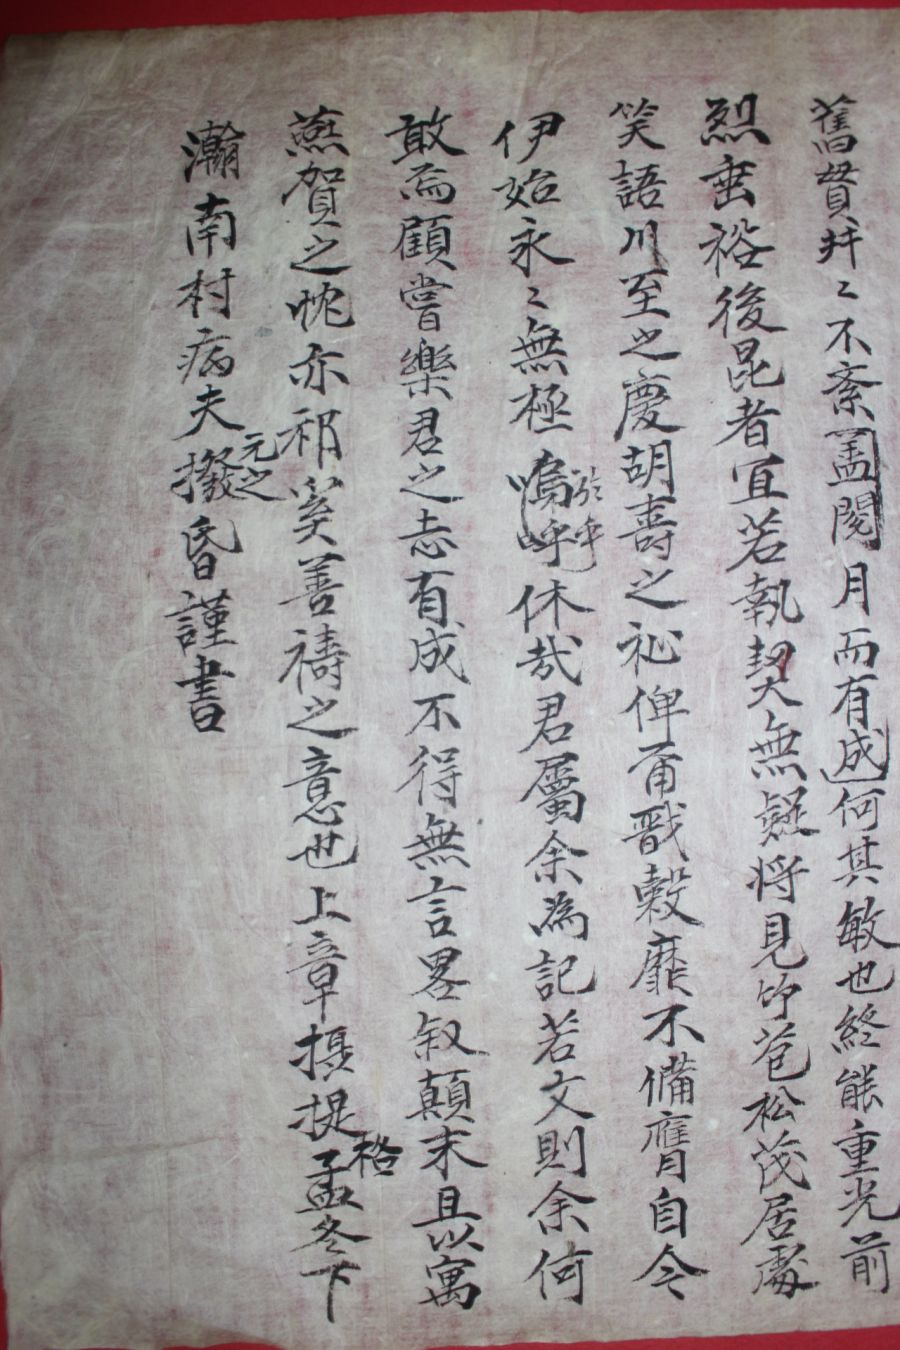 舊贒井〻不紊盖閱月而有成何其敏也終能重光前
烈垂裕後昆者宜若執契無疑将見竹苞松茂居處
笑語川至之慶胡壽之祉俾甫戩穀靡不備膺自今
伊始永〻無極嗚呼於乎休哉君屬余為記若文則余何
敢而顧嘗樂君之志有成不得無言畧叙顚末且以寓
燕賀之忱亦祁奚善禱之意也上章攝提格孟冬下
瀚南村病夫撥元之昏謹書